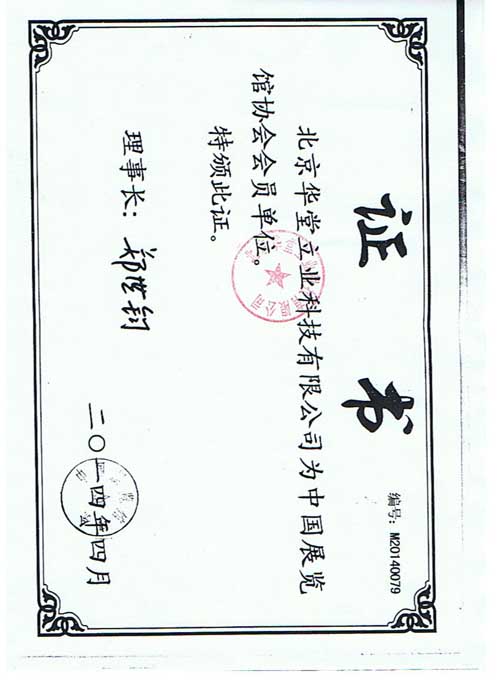 证书
编号：M20140079
北京华堂立业科技有限公司为中国展览
馆协会会员单位。
特颁此证。
理事长：郑世钧
二〇一四年四月